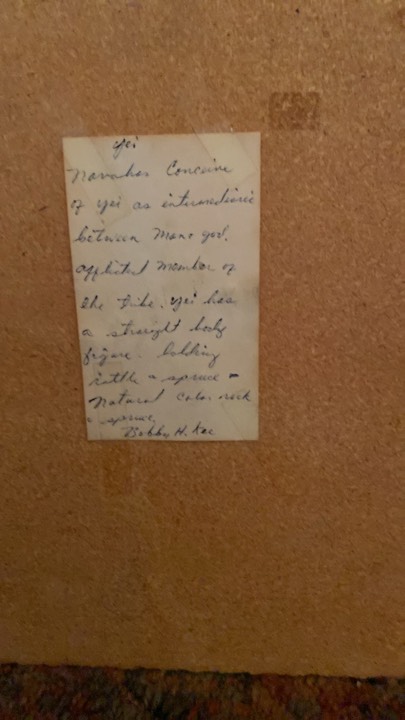 Yei
Navahos Conceive
of yei as intermediaries
between Man & god.
afflicted member of
the tribe. Yei has
a straight body
figure. holding
rattle & spruce -
Natural color rock
spruce,
Bobby H. Kee